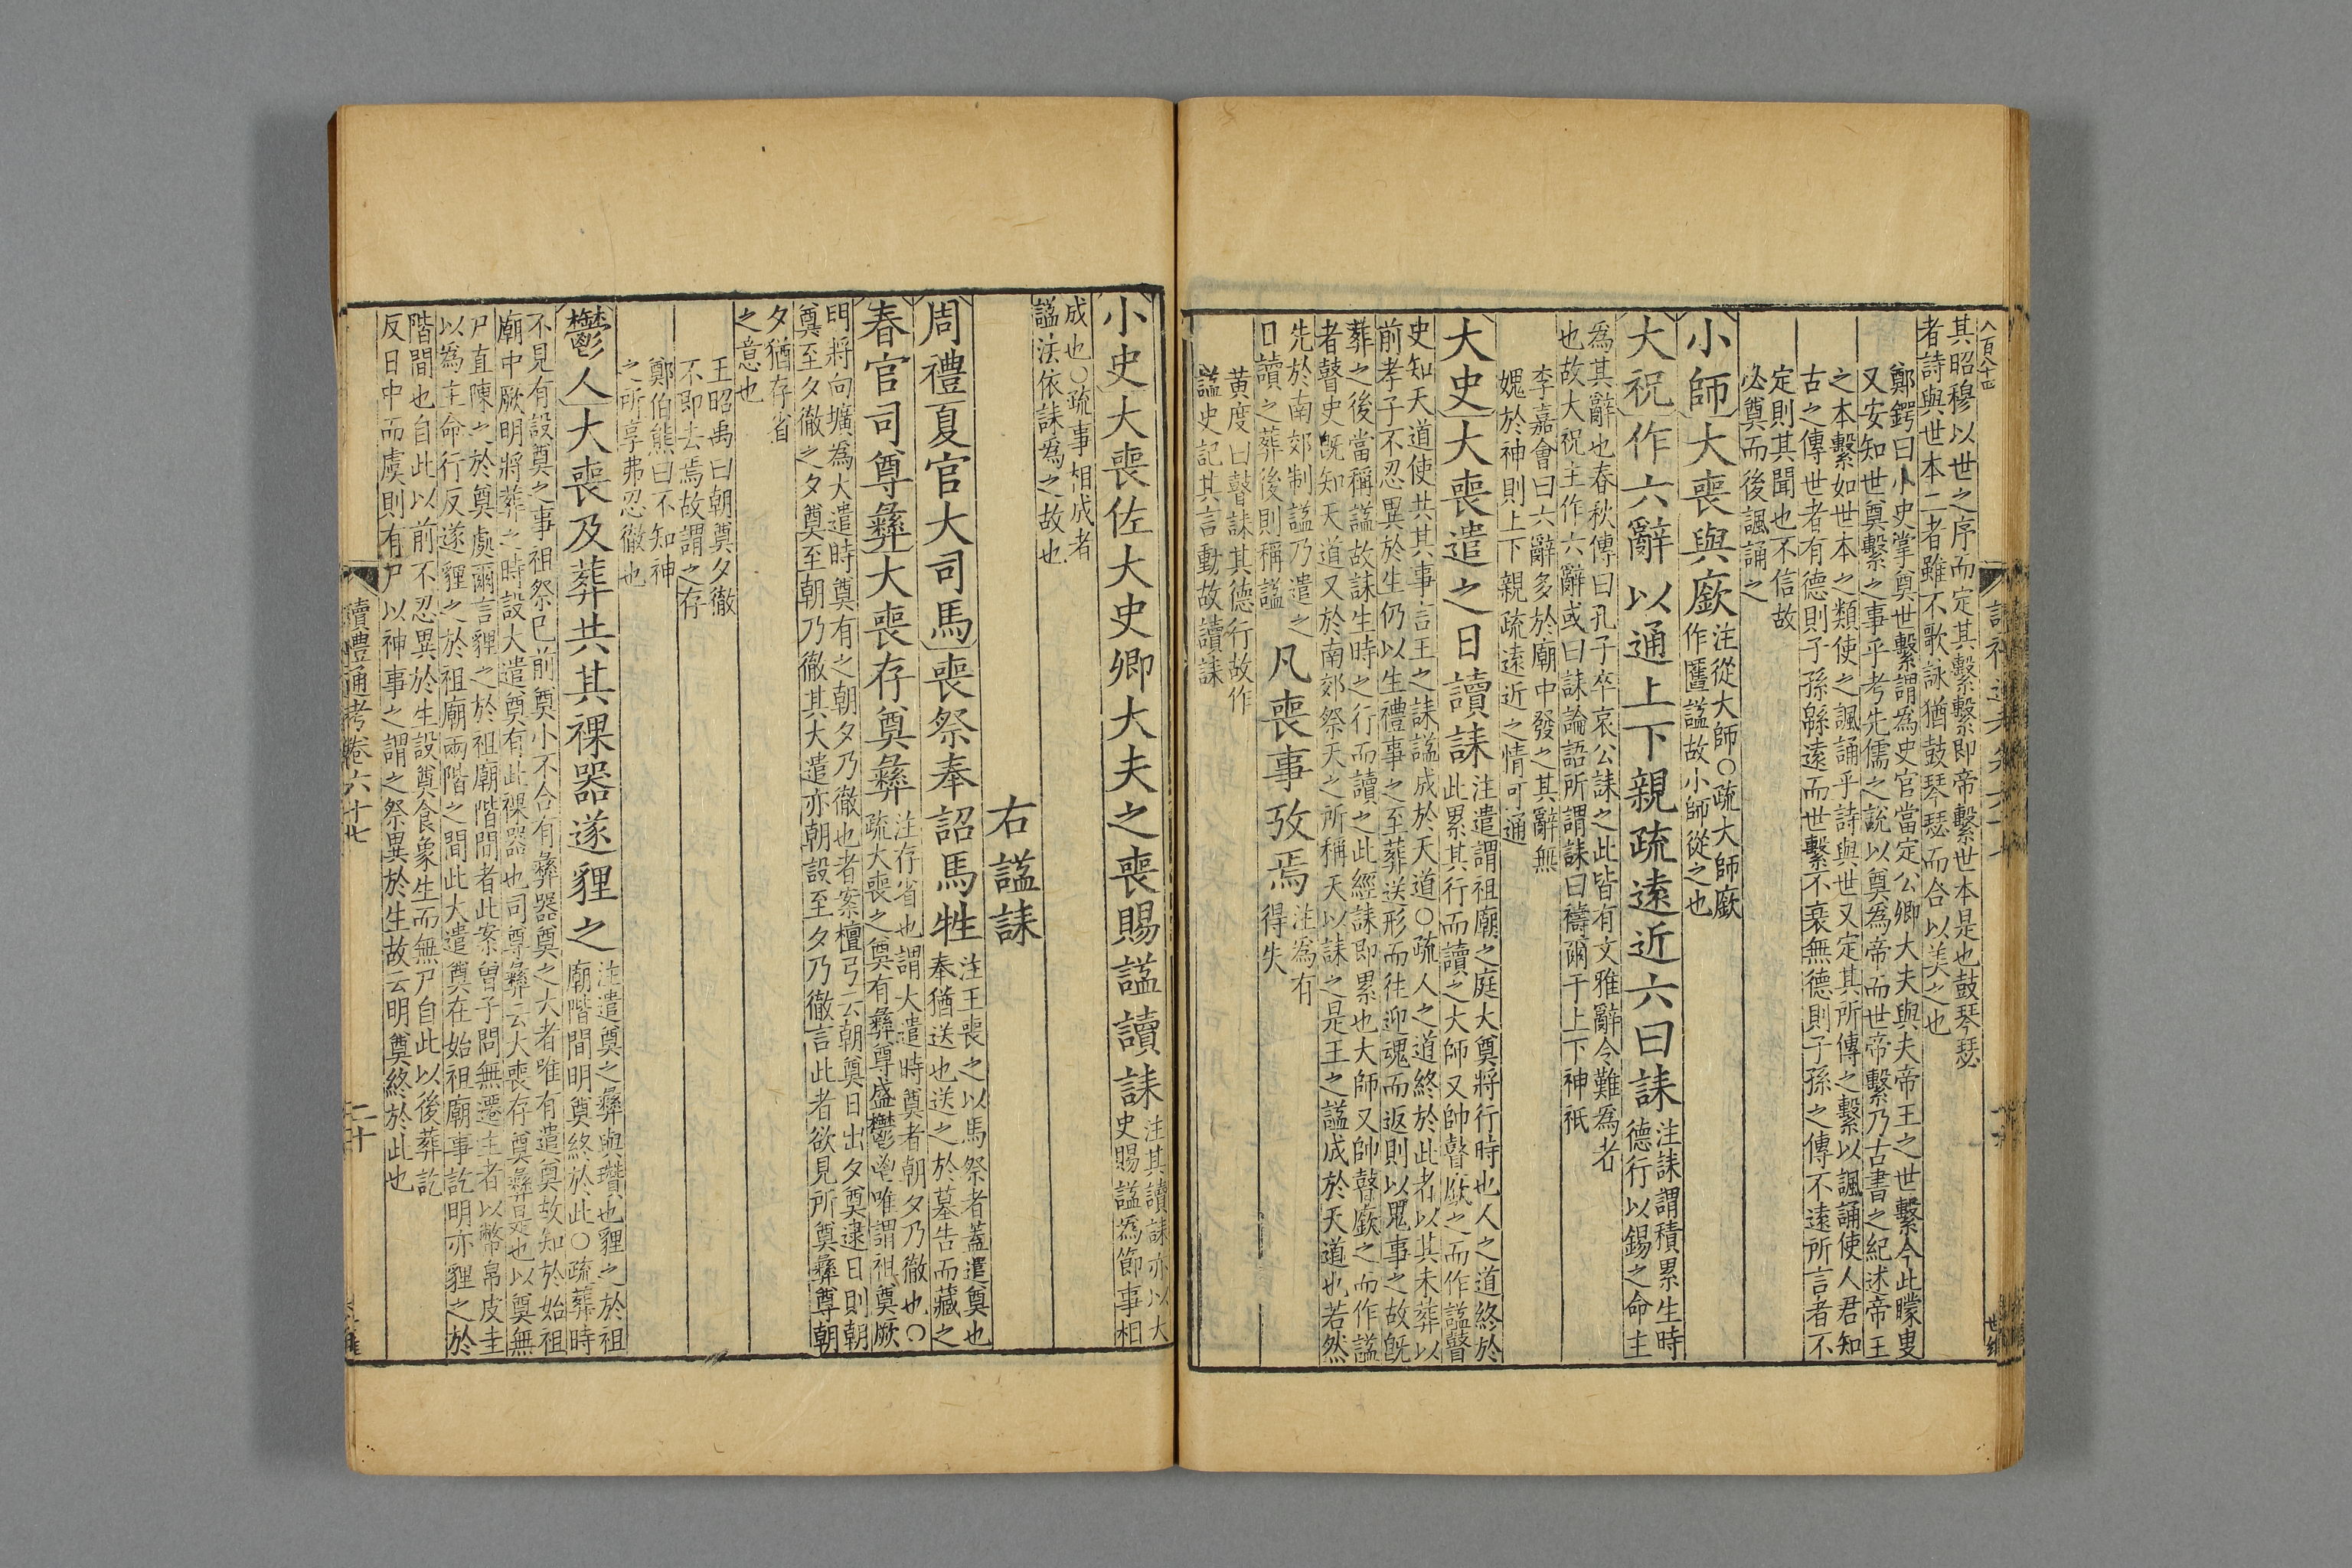 其昭穆以世之序而定其繫繫即帝繫世本是也鼓琴瑟
者詩與世本二者雖不歌詠猶鼓琴瑟而合以美之也
鄭鍔曰小史掌奠世繫謂為史官當定公卿大夫與夫帝王之世繫今此矇叟
又安知世奠繫之事乎考先儒之說以奠為帝而世帝繫乃古書之紀述帝王
之本繫如世本之類使之諷誦乎詩與世又定其所傳之繫以諷誦使人君知
古之傳世者有德則子孫緜遠而世繫不衰無德則子孫之傳不遠所言者不
定則其聞也不信故
必奠而後諷誦之
小師大喪與廞
注從大師○疏大師廞
作匶諡故小師從之也
大祝作六辭以通上下親疏遠近六曰誄
注誄謂積累生時
德行以錫之命主
為其辭也春秋傳曰孔子卒哀公誄之此皆有文雅辭令難為者
也故大祝主作六辭或曰誄論語所謂誄曰禱爾于上下神祇
李嘉會曰六辭多於廟中發之其辭無
媿於神則上下親疏遠近之情可通
大史大喪遣之日讀誄
注遣謂祖廟之庭大奠將行時也人之道終於
此累其行而讀之大師又帥瞽廞之而作諡瞽
史知天道使共其事言王之誄諡成於天道○疏人之道終於此者以其未葬以
前孝子不忍異於生仍以生禮事之至葬送形而往迎魂而返則以鬼事之故既
葬之後當稱諡故誄生時之行而讀之此經誄即累也大師又帥瞽廞之而作諡
者瞽史既知天道又於南郊祭天之所稱天以誄之是王之諡成於天道也若然
先於南郊制諡乃遣之
日讀之葬後則稱諡
凡喪事攷焉
注為有
得失
黃度曰瞽誄其德行故作
諡史記其言動故讀誄
小史大喪佐大史卿大夫之喪賜諡讀誄
注其讀誄亦以大
史賜諡為節事相
成也○疏事相成者
諡法依誄為之故也
右諡誄
周禮夏官大司馬喪祭奉詔馬牲
注王喪之以馬祭者蓋遣奠也
奉猶送也送之於墓告而藏之
春官司尊彝大喪存奠彝
注存省也謂大遣時奠者朝夕乃徹也○
疏大喪之奠有彝尊盛鬱鬯唯謂祖奠厥
明將向壙為大遣時奠有之朝夕乃徹也者案檀弓云朝奠日出夕奠逮日則朝
奠至夕徹之夕奠至朝乃徹其大遣亦朝設至夕乃徹言此者欲見所奠彝尊朝
夕猶存省
之意也
王昭禹曰朝奠夕徹
不即去焉故謂之存
鄭伯熊曰不知神
之所享弗忍徹也
鬱人大喪及葬共其祼器遂貍之
注遣奠之彝與瓚也貍之於祖
廟階間明奠終於此○疏葬時
不見有設奠之事祖祭已前奠小不合有彝器奠之大者唯有遣奠故知於始祖
廟中厥明將葬之時設大遣奠有此祼器也司尊彝云大喪存奠彝是也以奠無
尸直陳之於奠處爾言貍之於祖廟階間者此案曾子問無遷主者以幣帛皮圭
以為主命行反遂貍之於祖廟兩階之間此大遣奠在始祖廟事訖明亦貍之於
階間也自此以前不忍異於生設奠食象生而無尸自此以後葬訖
反日中而虞則有尸以神事之謂之祭異於生故云明奠終於此也
讀禮通考卷六十七
二十